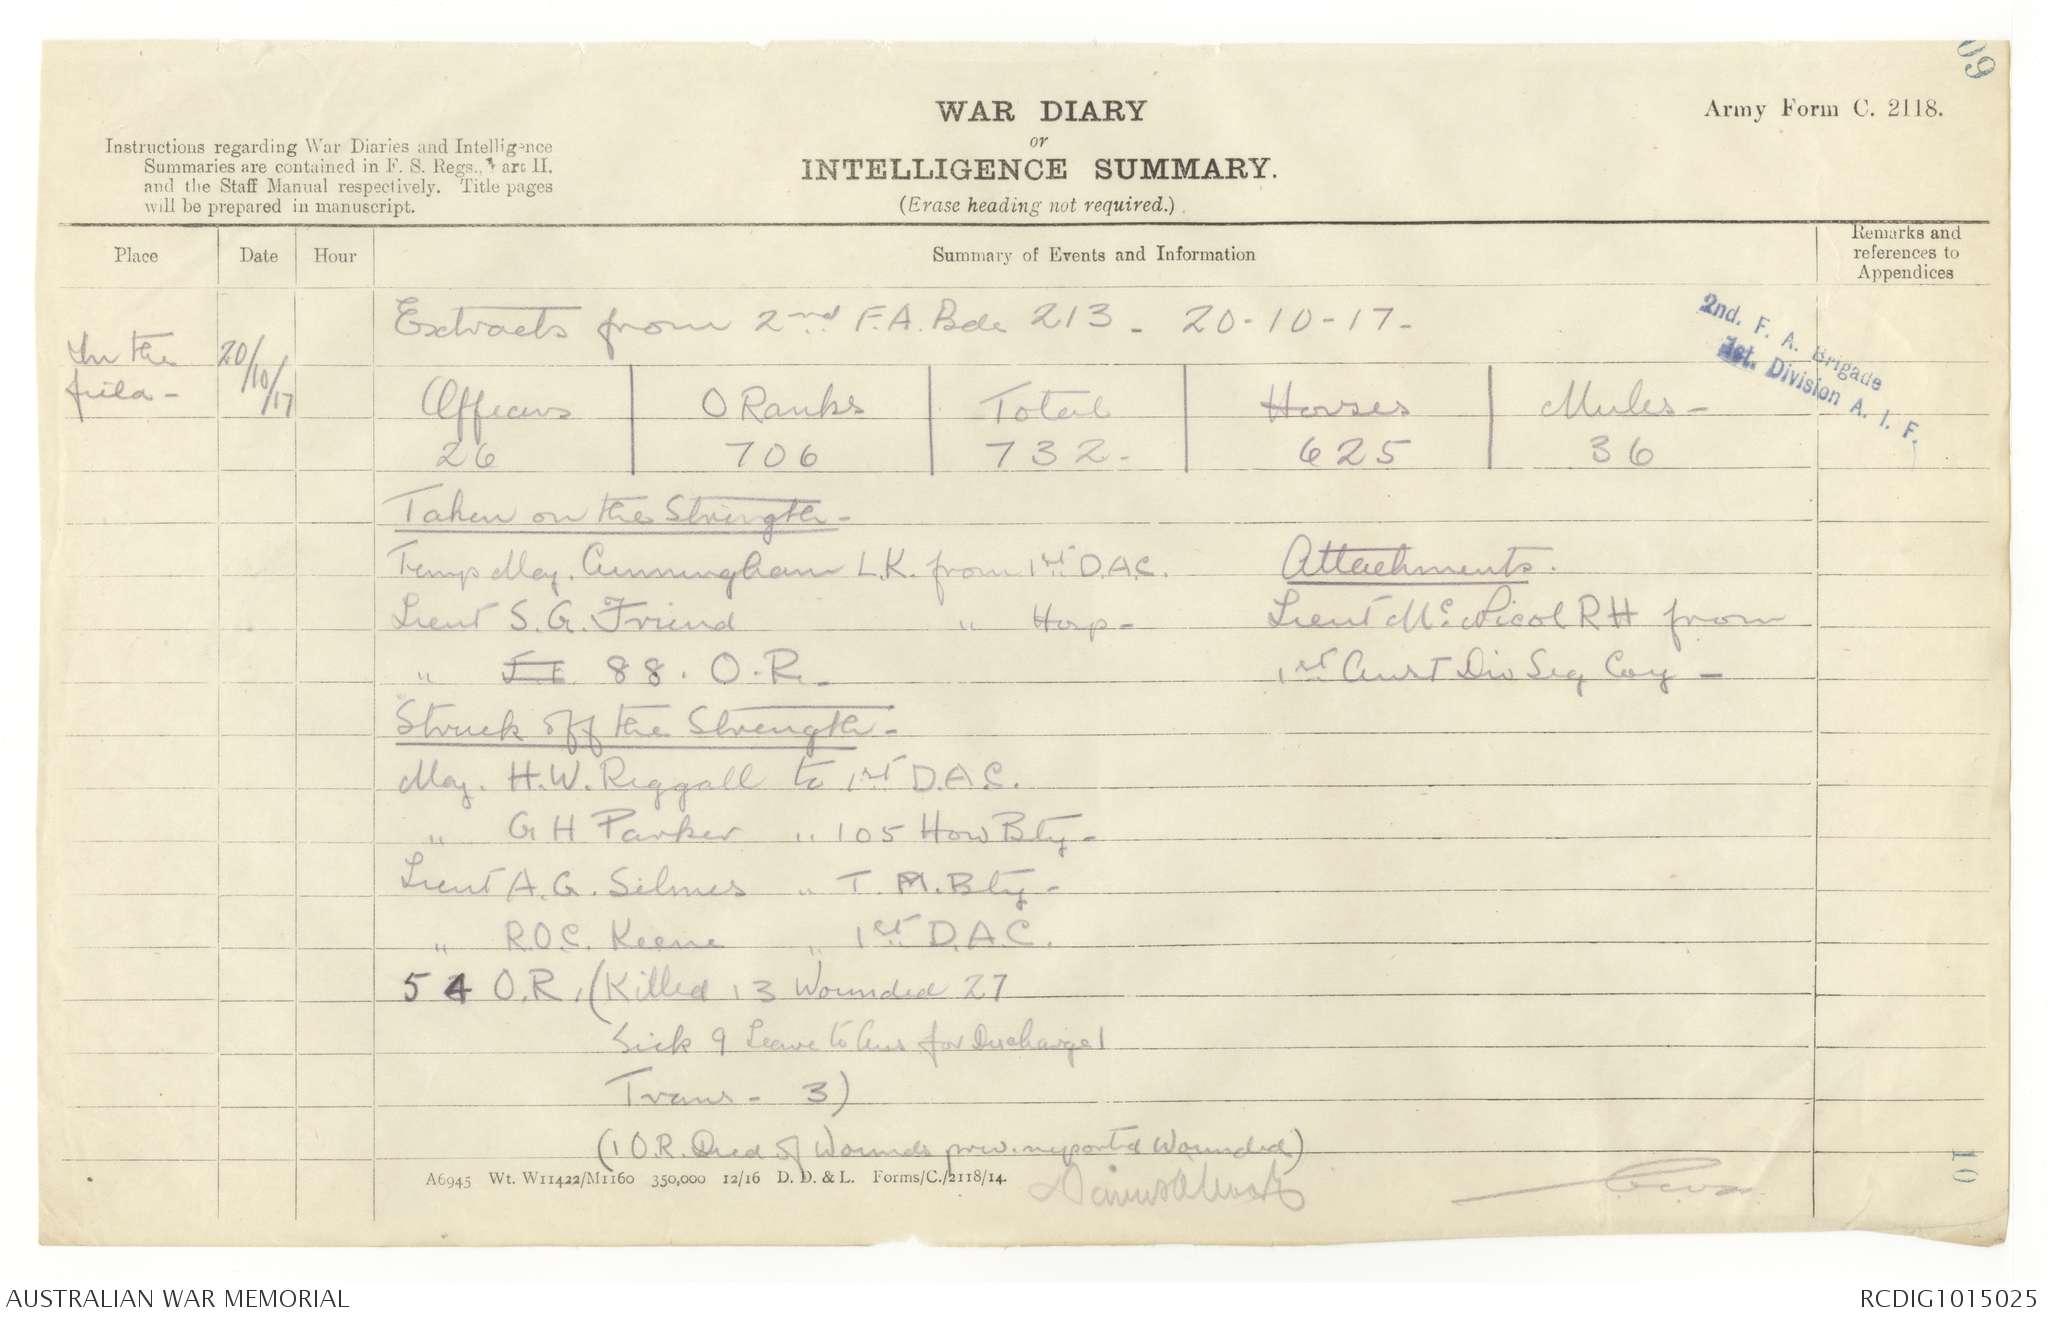 09
WAR DIARY
or
INTELLIGENCE SUMMARY.
(Erase heading not required.)
Army Form C. 2118.
Instructions regarding War Diaries and Intelligence
Summaries are contained in F. S. Regs., Part II.
and the Staff Manual respectively. Title pages
will be prepared in manuscript.
Place Date Hour Summary of Events and Information Remarks and references to Appendices
2nd. F. A. Brigade
1st. Division A. I. F.
In the field - 20/10/17
Extracts from 2nd F.A. Bde 213 - 20-10-17-
Officers O Ranks Total Horses Mules -
26 706 732 - 625 36
Taken on the Strength -
Temp Maj. Cunningham L.K. from 1st D.A.C. Attachments.
Lieut S.G. Friend " Hosp - Lieut Mc Nicol RH from
" 88. O.R. - 1st Aust Div Sig Coy -
Struck off the Strength -
Maj. H.W. Riggall to 1st D.A.C.
" G H Parker " 105 How Bty -
Lieut A.G. Silmes " T.M. Bty -
" R.O.C. Keene " 1st D.A.C.
54 O.R. (Killed 13 Wounded 27
Sick 9 Leave to Aus for Discharge 1
Trans - 3)
(1 O.R. Died of Wounds prev. reported Wounded)
A6945 Wt. W11422/M1160 350,000 12/16 D. D. & L. Forms/C./2118/14.
10
AUSTRALIAN WAR MEMORIAL
RCDIG1015025